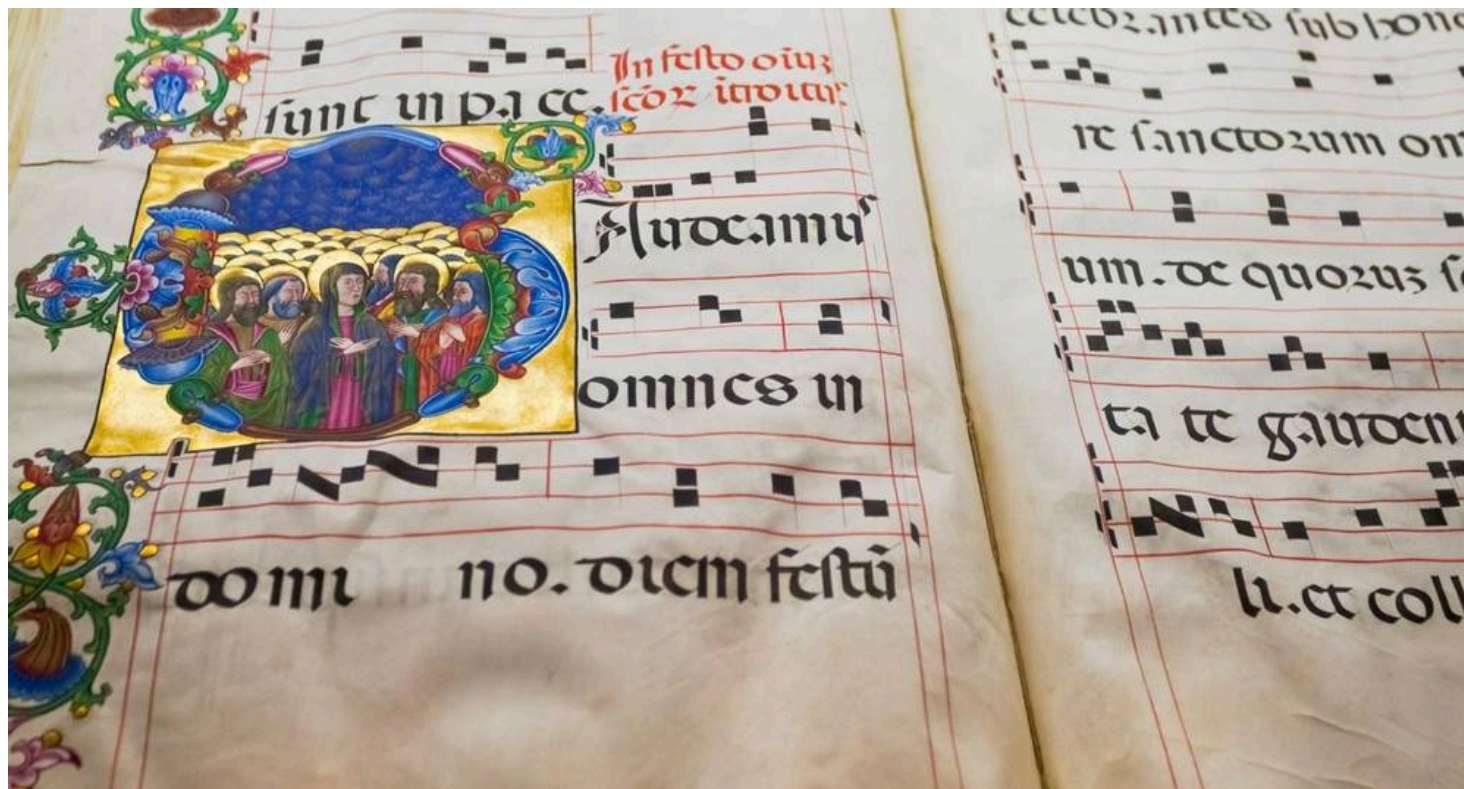 sunt in pa ce.
In festo oīuz
scōꝝ itroitus
Audeamus
omnes in
domi no. diem festū
celebrantes sub hono
re sanctorum om
um. de quoruz so
ta te gauden
li. et coll